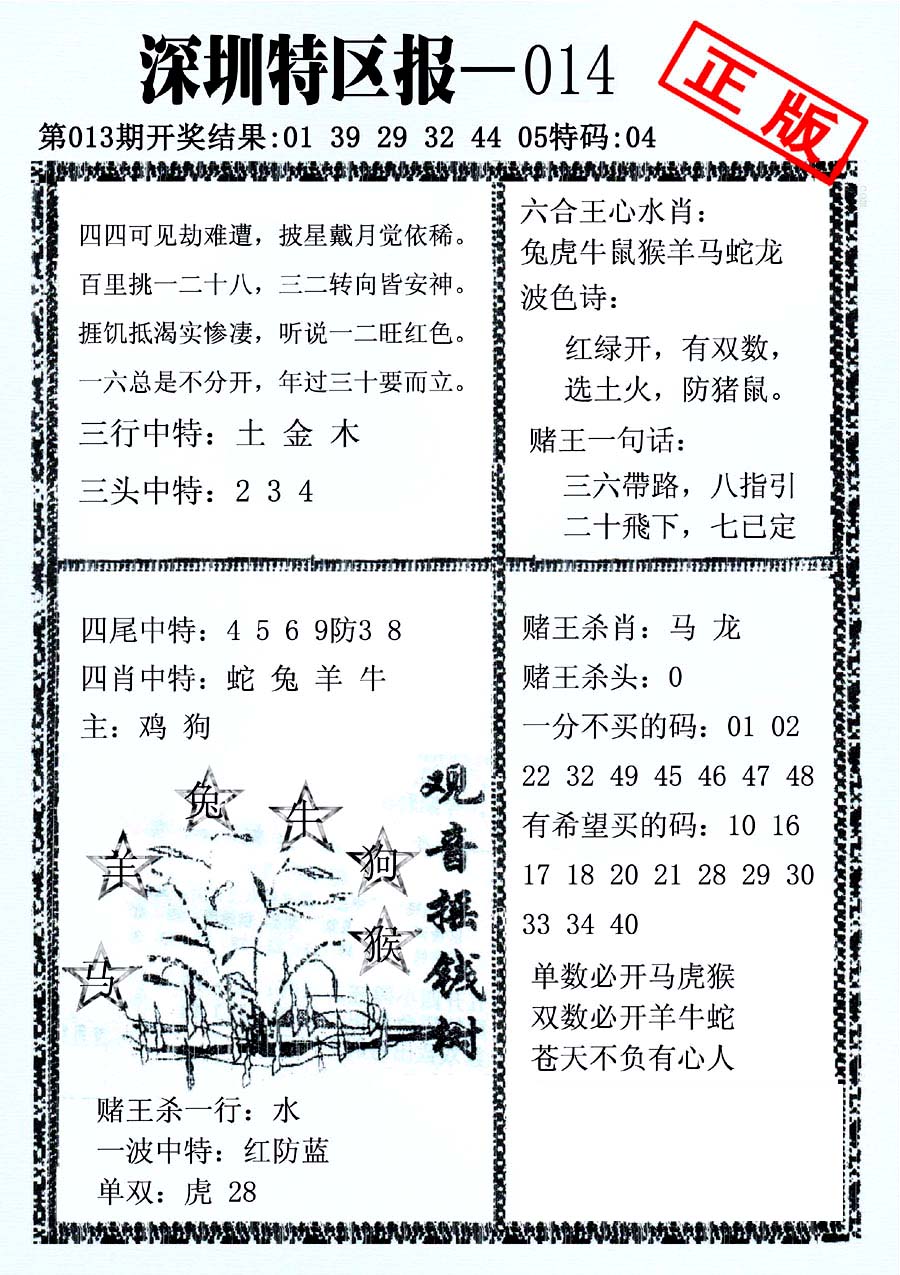 深圳特区报—014
正版
第013期开奖结果:01 39 29 32 44 05特码:04
四四可见劫难遭，披星戴月觉依稀。
百里挑一二十八，三二转向皆安神。
捱饥抵渴实惨凄，听说一二旺红色。
一六总是不分开，年过三十要而立。
三行中特：土 金 木
三头中特：2 3 4
六合王心水肖：
兔虎牛鼠猴羊马蛇龙
波色诗：
红绿开，有双数，
选土火，防猪鼠。
赌王一句话：
三六帶路，八指引
二十飛下，七已定
四尾中特：4 5 6 9防3 8
四肖中特：蛇 兔 羊 牛
主：鸡 狗
兔
牛
羊
狗
猴
马
观音摇钱树
赌王杀一行：水
一波中特：红防蓝
单双：虎 28
赌王杀肖：马 龙
赌王杀头：0
一分不买的码：01 02
22 32 49 45 46 47 48
有希望买的码：10 16
17 18 20 21 28 29 30
33 34 40
单数必开马虎猴
双数必开羊牛蛇
苍天不负有心人